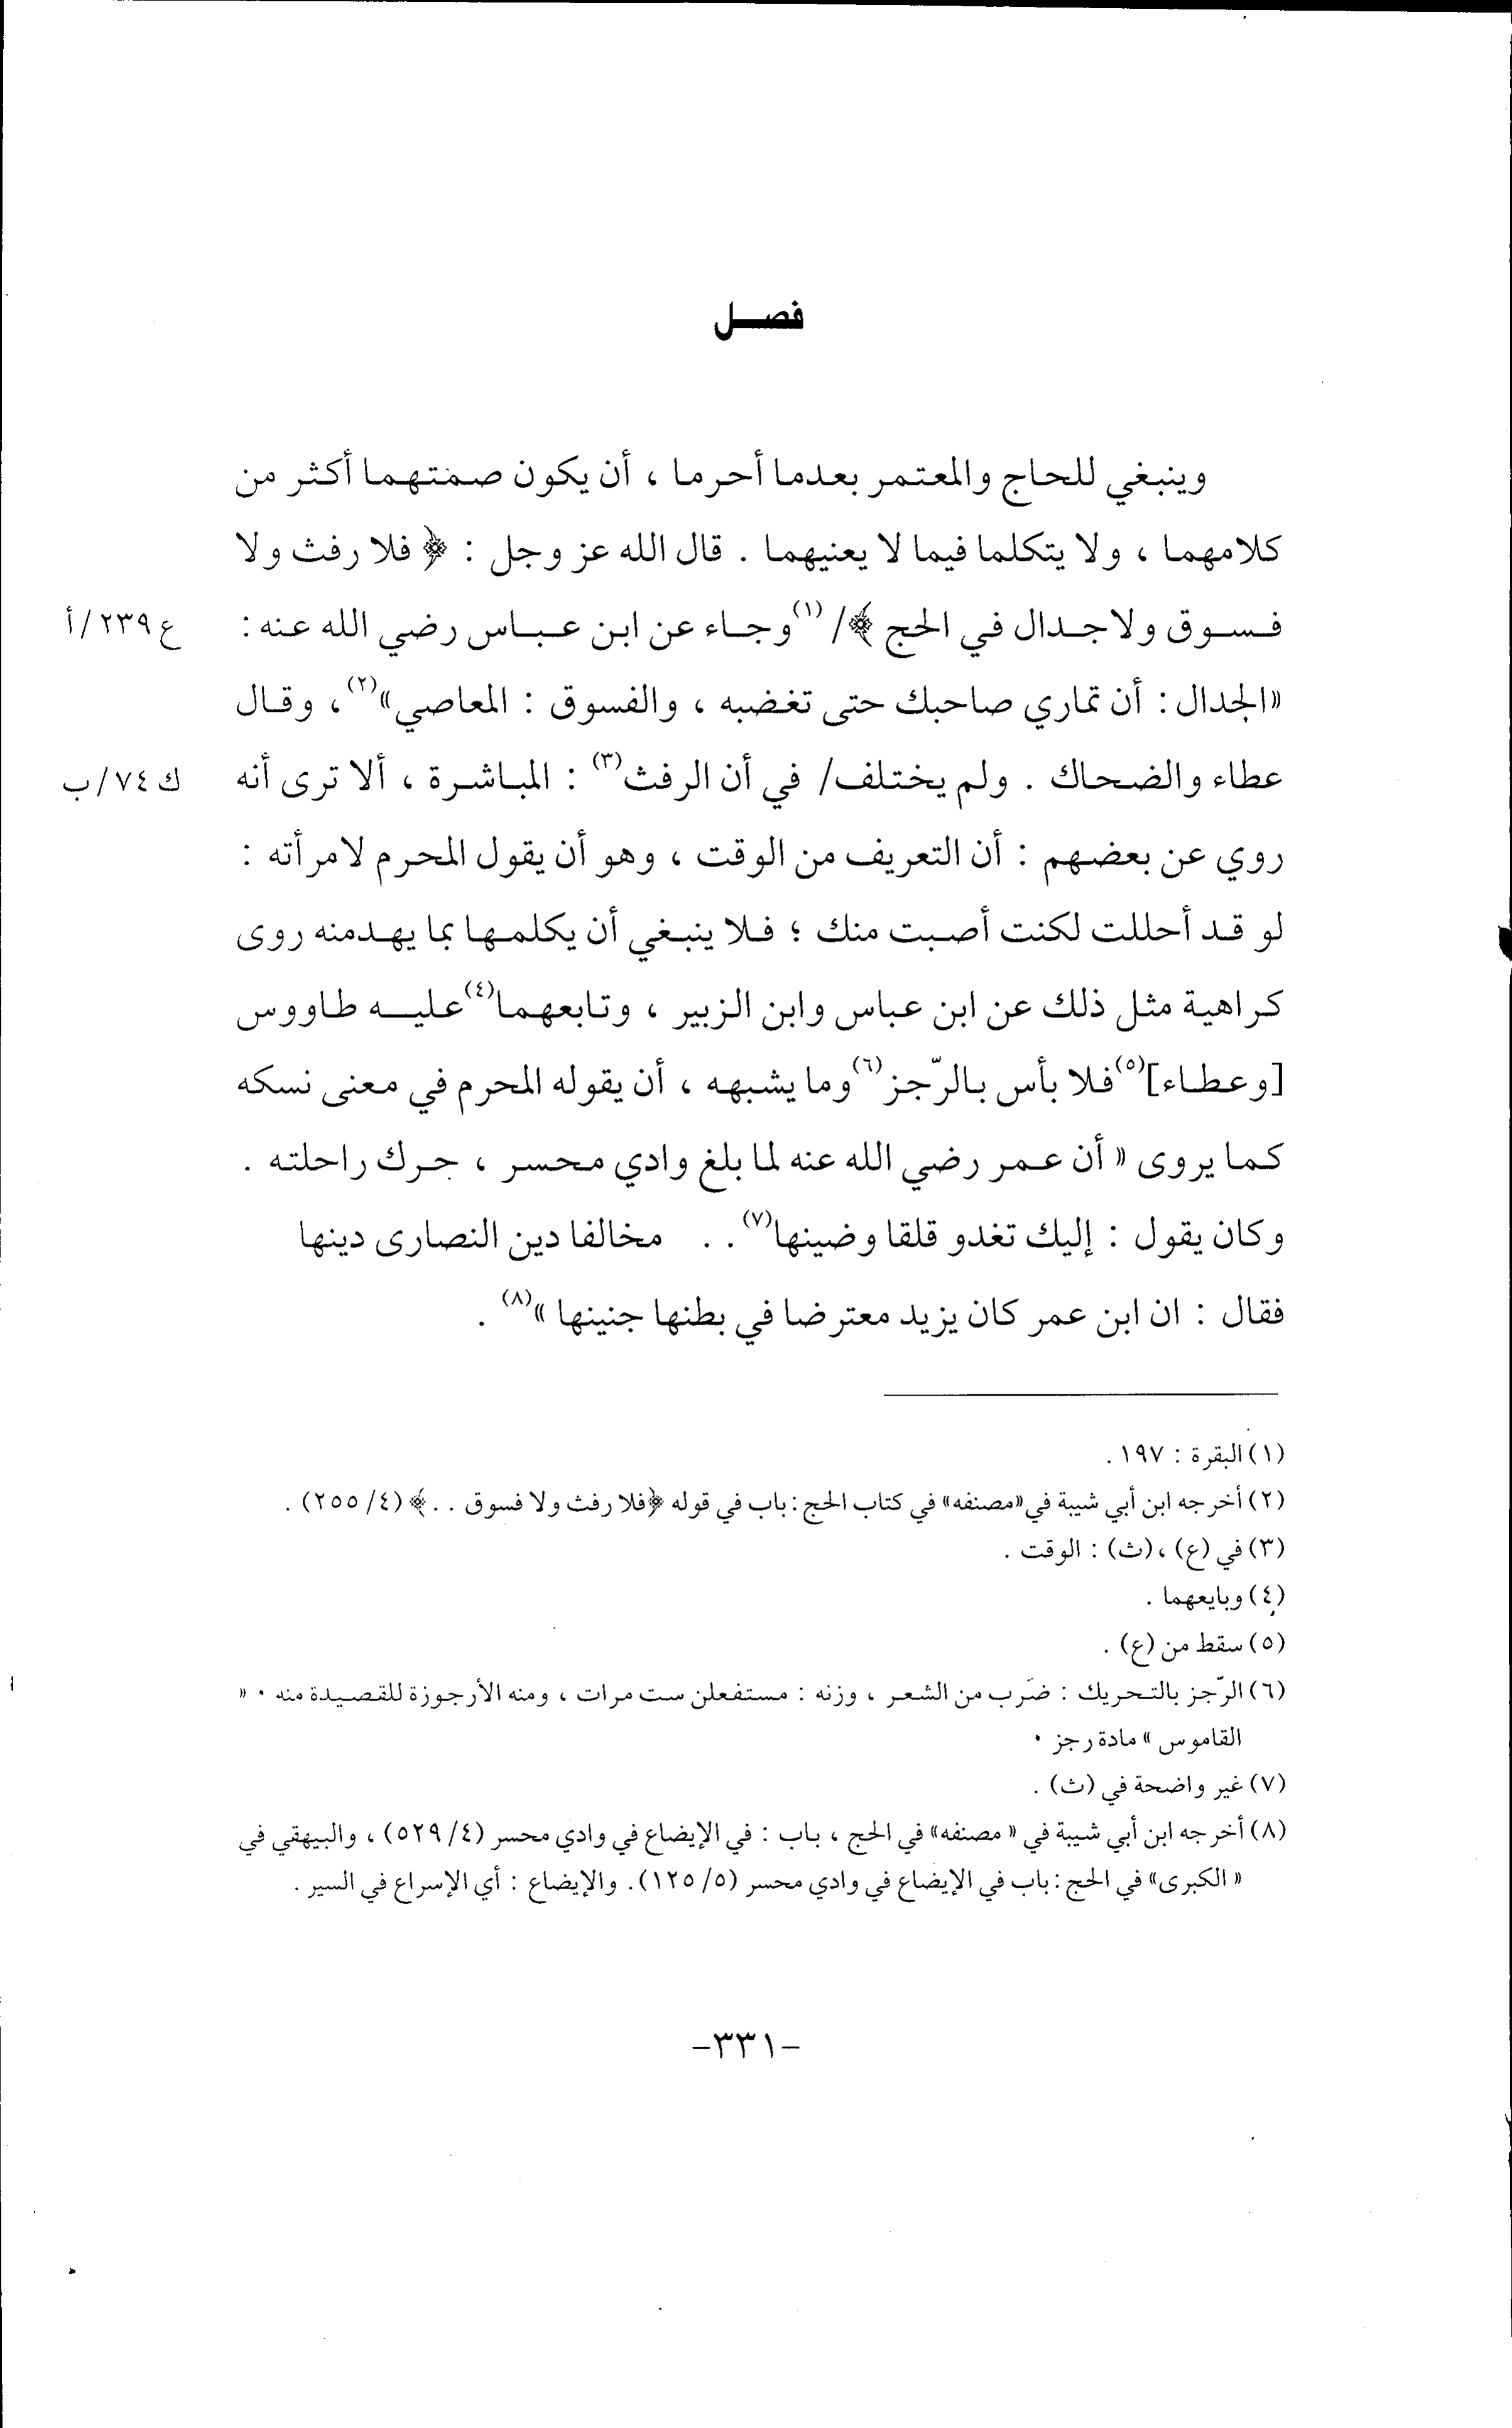 فصل
وينبغي للحاج والمعتمر بعدما أحرما ، أن يكون صمتهما أكثر من
كلامهما ، ولا يتكلما فيما لا يعنيهما . قال الله عز وجل : ﴿ فلا رفث ولا
فسوق ولا جدال في الحج ﴾/ (١) وجاء عن ابن عباس رضي الله عنه : ع ٢٣٩/أ
«الجدال : أن تماري صاحبك حتى تغضبه ، والفسوق : المعاصي»(٢) ، وقال
عطاء والضحاك . ولم يختلف/ في أن الرفث(٣) : المباشرة ، ألا ترى أنه ك ٧٤/ب
روي عن بعضهم : أن التعريف من الوقت ، وهو أن يقول المحرم لامرأته :
لو قد أحللت لكنت أصبت منك ؛ فلا ينبغي أن يكلمها بما يهدمنه روى
كراهية مثل ذلك عن ابن عباس وابن الزبير ، وتابعهما(٤) عليه طاووس
[وعطاء](٥) فلا بأس بالرّجز(٦) وما يشبهه ، أن يقوله المحرم في معنى نسكه
كما يروى « أن عمر رضي الله عنه لما بلغ وادي محسر ، حرك راحلته .
وكان يقول : إليك تغدو قلقا وضينها(٧) . . مخالفا دين النصارى دينها
فقال : ان ابن عمر كان يزيد معترضا في بطنها جنينها »(٨) .
(١) البقرة : ١٩٧ .
(٢) أخرجه ابن أبي شيبة في «مصنفه» في كتاب الحج : باب في قوله ﴿فلا رفث ولا فسوق . . ﴾ (٤/ ٢٥٥) .
(٣) في (ع) ، (ث) : الوقت .
(٤) وبايعهما .
(٥) سقط من (ع) .
(٦) الرّجز بالتحريك : ضَرب من الشعر ، وزنه : مستفعلن ست مرات ، ومنه الأرجوزة للقصيدة منه . «
القاموس » مادة رجز .
(٧) غير واضحة في (ث) .
(٨) أخرجه ابن أبي شيبة في « مصنفه» في الحج ، باب : في الإيضاع في وادي محسر (٤/ ٥٢٩) ، والبيهقي في
« الكبرى» في الحج : باب في الإيضاع في وادي محسر (٥/ ١٢٥) . والإيضاع : أي الإسراع في السير .
-٣٣١-